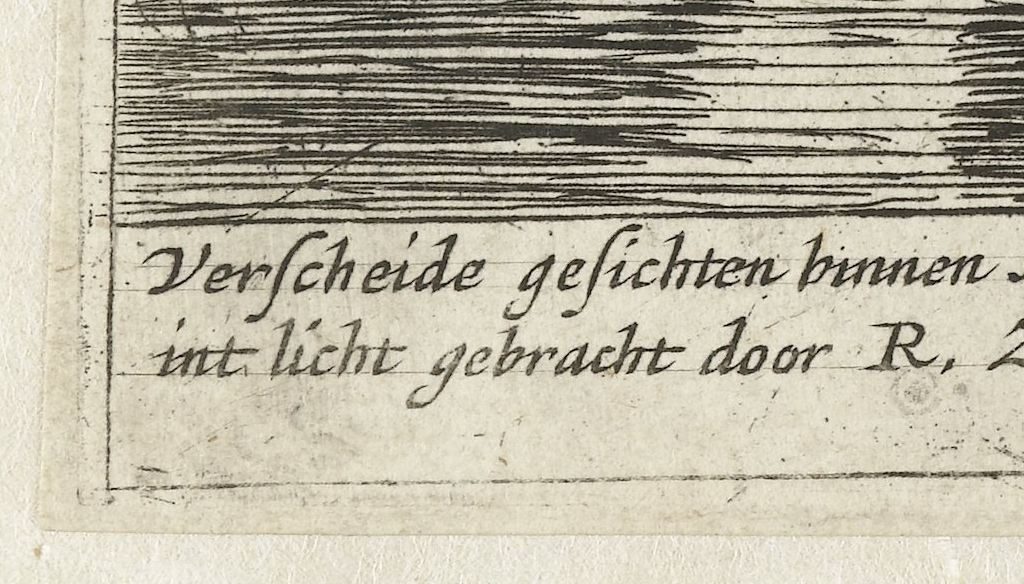 Verſcheide geſichten binnen
int licht gebracht door R.